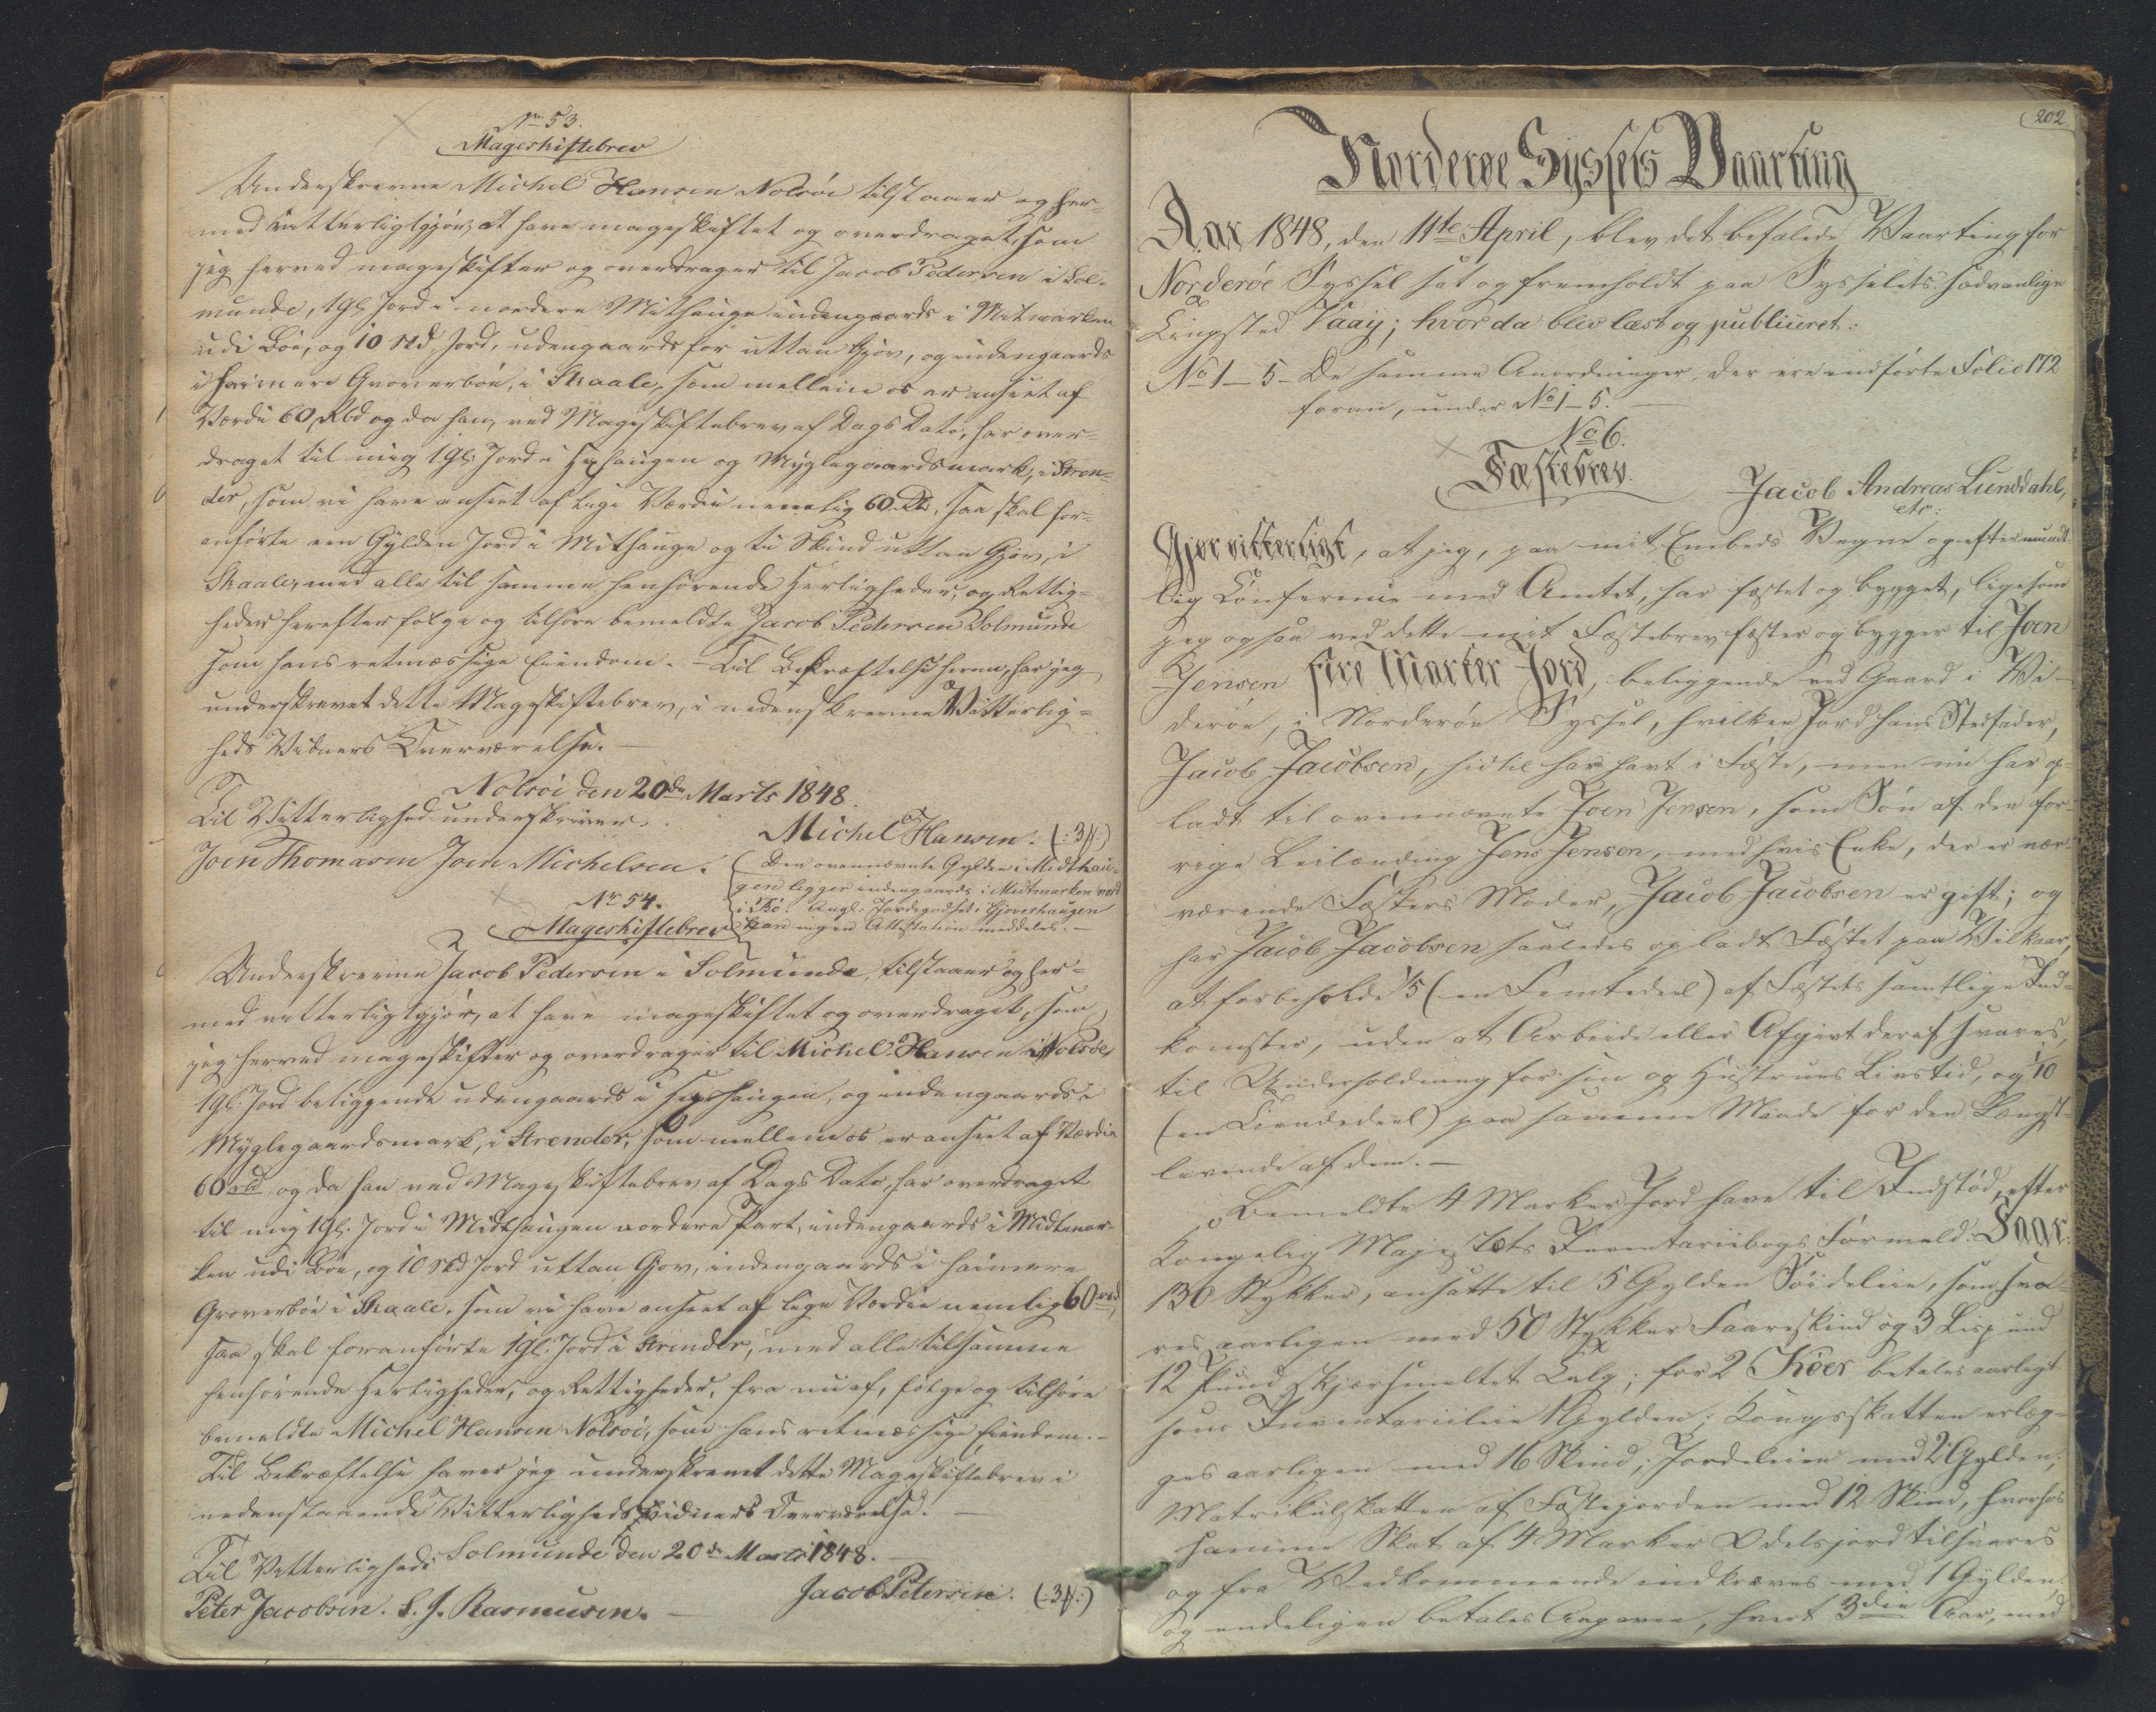 No 53.
Mageskiftebrev
Underskrevne Michel Hansen Nolsöi tilstaaer og her-
med vitterliggjör, at have mageskiftet og overdraget, som
jeg herved mageskifter og overdrager til Jacob Pedersen i Sol-
munde, 1 Gl. Jord i nordere Mithauge indengaards i Mitmarken
udi Böe, og 10 Skd Jord, udengaards for uttan Gjov, og indengaards
i heimare Groverböe, i Skaale, som mellem os er anseet af
Værdi 60 Rbd og da han, ved Mageskiftebrev af Dags Dato, har over-
draget til mig 1 Gl. Jord i Hughaugen og Myglegaardsmark, i Stren-
der, som vi have anseet af lige Værdie nemlig 60 Rbd, saa skal for-
anförte een Gylden Jord i Mithauge og ti Skind uttan Gjov, i
Skaale, med alle til samme henhörende Herligheder, og Rettig-
heder herefter fölge og tilhöre bemeldte Jacob Pedersen Solmunde
som hans retmæssige Eiendom. – Til Bekræftelse herom, har jeg
underskrevet dette Mageskiftebrev, i nedenskrevne Vitterlig-
heds Vidners Overværelse. –
Nolsöi den 20de Marts 1848.
Til Vitterlighed underskriver.
Michel Hansen. (:3ß:)
Joen Thomasen Joen Michelsen.
Den ovennævnte Gylden i Midthau-
gen ligger indengaards i Midtmarken nord
i Bö. Angl: Jordegodset i Gjoverhaugen
kan ingen Attestation meddeles. –
No 54.
Mageskiftebrev
Underskrevne Jacob Pedersen i Solmunde, tilstaaer og her-
med vitterliggjör, at have mageskiftet og overdraget, som
jeg herved mageskifter og overdrager til Michel Hansen i Nolsöe,
1 Gl. Jord beliggende udengaards i Hughaugen, og indengaards i
Myglegaardsmark, i Strender, som mellem os er anseet af Værdie
60 rbd og da han ved Mageskiftebrev af Dags Dato, har overdraget
til mig 1 Gl. Jord i Midthaugen nordere Part, indengaards i Midtmar-
ken udi Böe, og 10 Skd Jord uttan Gjov, indengaards i heimare
Groverböe i Skaale, som vi have anseet af lige Værdie nemlig 60 rbd,
saa skal foranförte 1 Gl. Jord i Strender, med alle til samme
henhörende Herligheder, og Rettigheder, fra nu af, fölge og tilhöre
bemeldte Michel Hansen Nolsöi, som hans retmæssige Eiendom. –
Til Bekræftelse haver jeg underskrevet dette Mageskiftebrev i
nedenstaaende Vitterligheds Vidners Overværelse. –
Solmunde den 20de Marts 1848.
Til Vitterlighed:
Jacob Petersen. (:3ß:)
Peter Jacobsen. S. J. Rasmusen. –
202
Norderøe Syssels Vaarting
Aar 1848, den 11te April, blev det befalede Vaarting for
Norderöe Syssel sat og fremholdt paa Sysselets sædvanlige
Tingsted Vaaij; hvor da blev læst og publiceret:
No 1–5– De samme Anordninger, der ere indförte Folio 172
foran, under No 1–5. –
No 6.
Fæstebrev.
Jacob Andreas Lunddahl,
etc:
Gjør vitterligt, at jeg, paa mit Embeds Vegne og efter mundt-
lig Conference med Amtet, har fæstet og bygget, ligesom
jeg ogsaa ved dette mit Fæstebrev fæster og bygger til Joen
Jensen fire Marker Jord, beliggende ved Gaard i Vi-
deröe, i Norderöe Syssel, hvilken Jord hans Stedfader,
Jacob Jacobsen, hidtil har havt i Fæste, men nu har op-
ladt til ovennævnte Joen Jensen, som Sön af den for-
rige Leilænding Jens Jensen, med hvis Enke, der er nær-
værende Fæsters Moder, Jacob Jacobsen er gift; og
har Jacob Jacobsen saaledes opladt Fæstet paa Vilkaar,
at forbeholde 1/5 (en Femtedeel) af Fæstets samtlige Ind-
komster, uden at Arbeide eller Afgivt deraf svares,
til Underholdning for sin og Hustrues Livstid, og 1/10
(en Tiendedeel) paa samme Maade for den Længst-
levende af dem. –
Bemeldte 4 Marker Jord have til Indstöd, efter
Kongelig Majestæts Inventariibogs Formeld: Faar:
130 Stykker, ansatte til 5 Gylden Söideleie, som sva-
res aarligen med 50 Stykker Faareskind og 3 Lispund
12 Pund skjærsmeltet Talg; for 2 Köer betales aarligt
som Inventariileie 1 Gylden; Kongsskatten erlæg-
ges aarligen med 16 Skind; Jordeleien med 2 Gylden;
Matrikulskatten af Fæstejorden med 12 Skind, hvorhos
samme Skat af 4 Marker Odelsjord tilsvares
og fra Vedkommende indkræves med 1 Gylden,
og endeligen betales Angaven, hvert 3die Aar, med